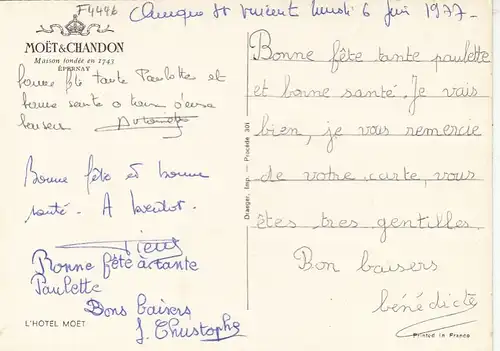 F4446
St Vincent lundi 6 juin 1977
MOËT&CHANDON
Maison fondée en 1743
ÉPERNAY
bonne fête tante Paulotte et
bonne santé
Bonne fête et bonne
santé. A bientot.
Bonne fête à tante
Paulette
Bons baisers
J. Christophe
L'HOTEL MOET
Draeger, Imp. — Procédé 301
Bonne fête tante paulette
et bonne santé. Je vais
bien, je vous remercie
de votre carte, vous
êtes tres gentilles.
Bon baisers
bénédicte
Printed in France